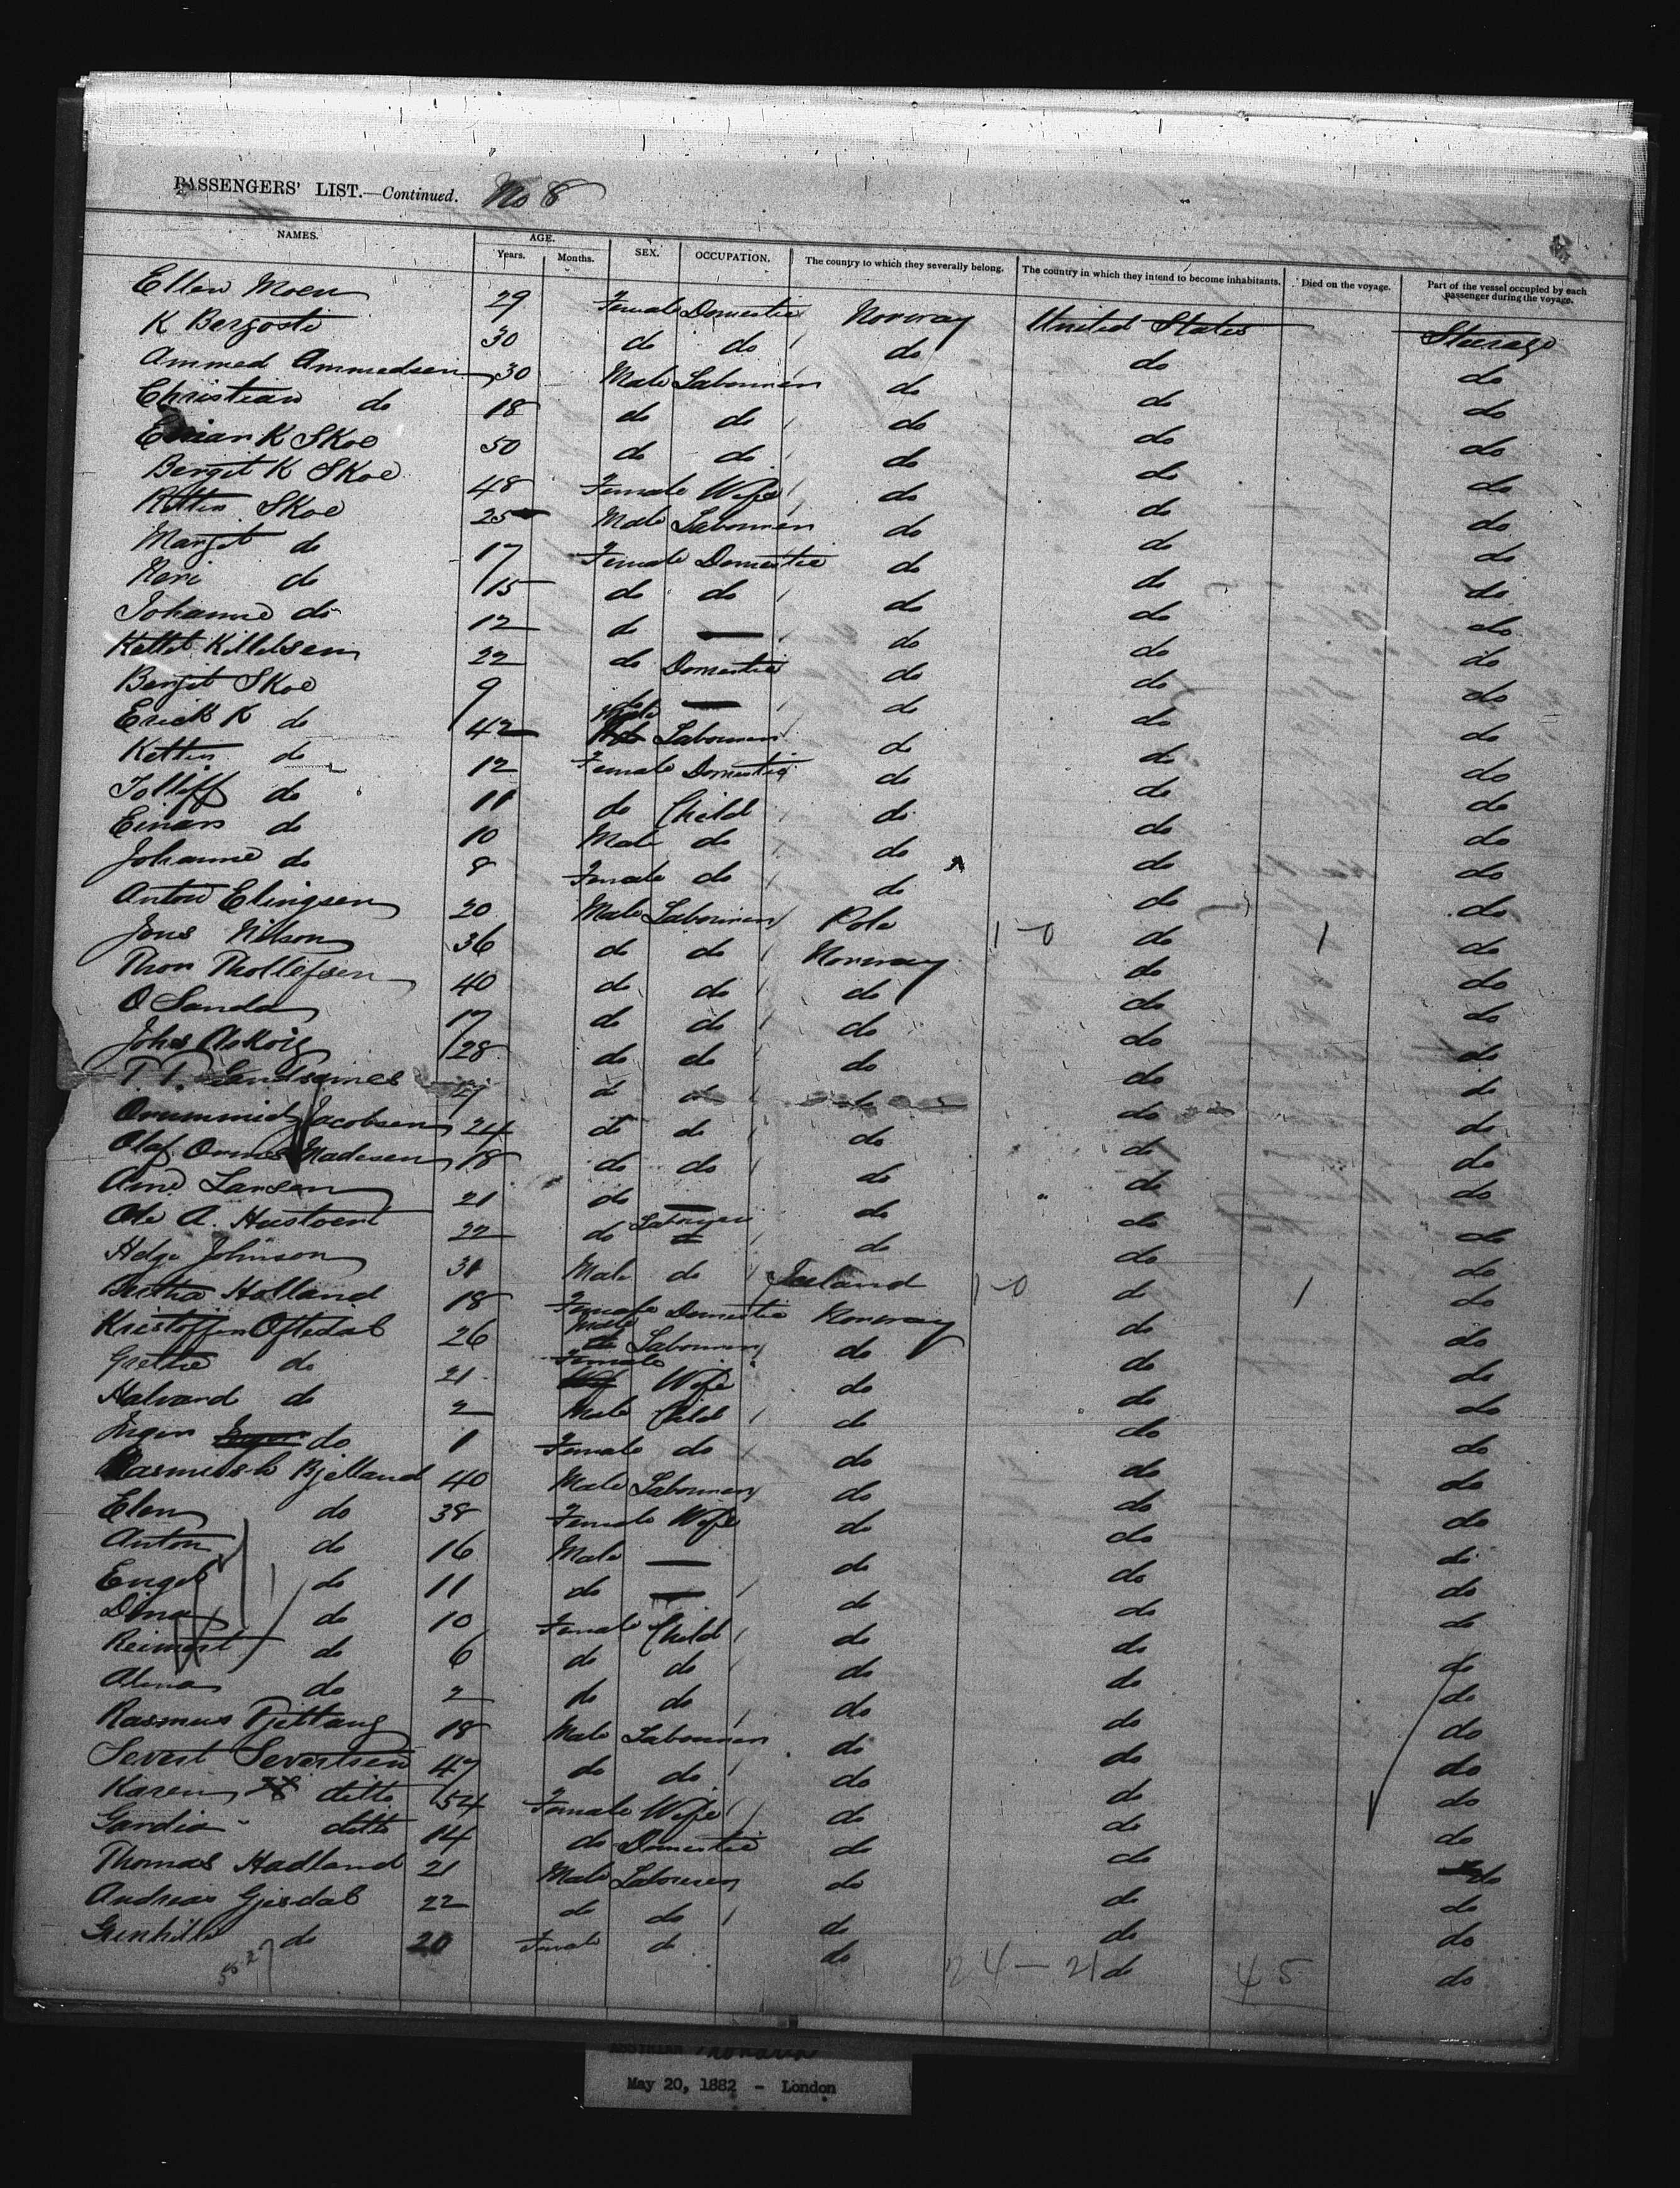 PASSENGERS' LIST.—Continued. No 8
NAMES. AGE. Years. Months. SEX. OCCUPATION. The country to which they severally belong. The country in which they intend to become inhabitants. Died on the voyage. Part of the vessel occupied by each passenger during the voyage.
Ellen Moen 29 Female Domestic Norway United States Steerage
K Bergosti 30 do do do do do
Ammed Ammedsen 30 Male Labourer do do do
Christian do 18 do do do do do
K Skoe 50 do do do do do
Bergit K Skoe 48 Female Wife do do do
Skoe 25 Male Labourer do do do
Margit do 17 Female Domestic do do do
Keri do 15 do do do do do
Johanne do 12 do — do do do
Kettil Killilsen 22 do Domestic do do do
Bergit Skoe 9 do — do do do
Erick K do 42 Male Labourer do do do
Kettin do 12 Female Domestic do do do
Tolleff do 11 do Child do do do
Einar do 10 Male do do do do
Johanne do 8 Female do do do do
Anton Elingsen 20 Male Labourer Pole 1-0 do 1 do
Jens Nilson 36 do do Norway do do
Thor Thollefsen 40 do do do do do
O Sanda 17 do do do do do
Johs 28 do do do do do
T. T. 27 do do do do do
Jacobsen 24 do do do do do
Olaf Madesen 18 do do do do do
Arne Larsen 21 do — do do do
Ole A. Hustvent 22 do Labourer do do do
Helge Johnson 31 Male do Iceland 1-0 do 1 do
Bertha Holland 18 Female Domestic Norway do do
Kristoffer Oftedal 26 Male Labourer do do do
Grethe do 21 Female Wife do do do
Halvard do 2 Male Child do do do
Inger do 1 Female do do do do
Rasmus Bjelland 40 Male Labourer do do do
Elen do 38 Female Wife do do do
Anton do 16 Male — do do do
Engel do 11 do — do do do
Dina do 10 Female Child do do do
Reimert do 6 do do do do do
Alma do 2 do do do do do
Rasmus 18 Male Labourer do do do
Severt Severtsen 47 do do do do do
Karen ditto 54 Female Wife do do do
Gardia ditto 14 do Domestic do do do
Thomas Hadland 21 Male Labourer do do do
Andreas Gjesdal 22 do do do do do
do 20 Female do do do do
5527 24 — 21 45
May 20, 1882 - London